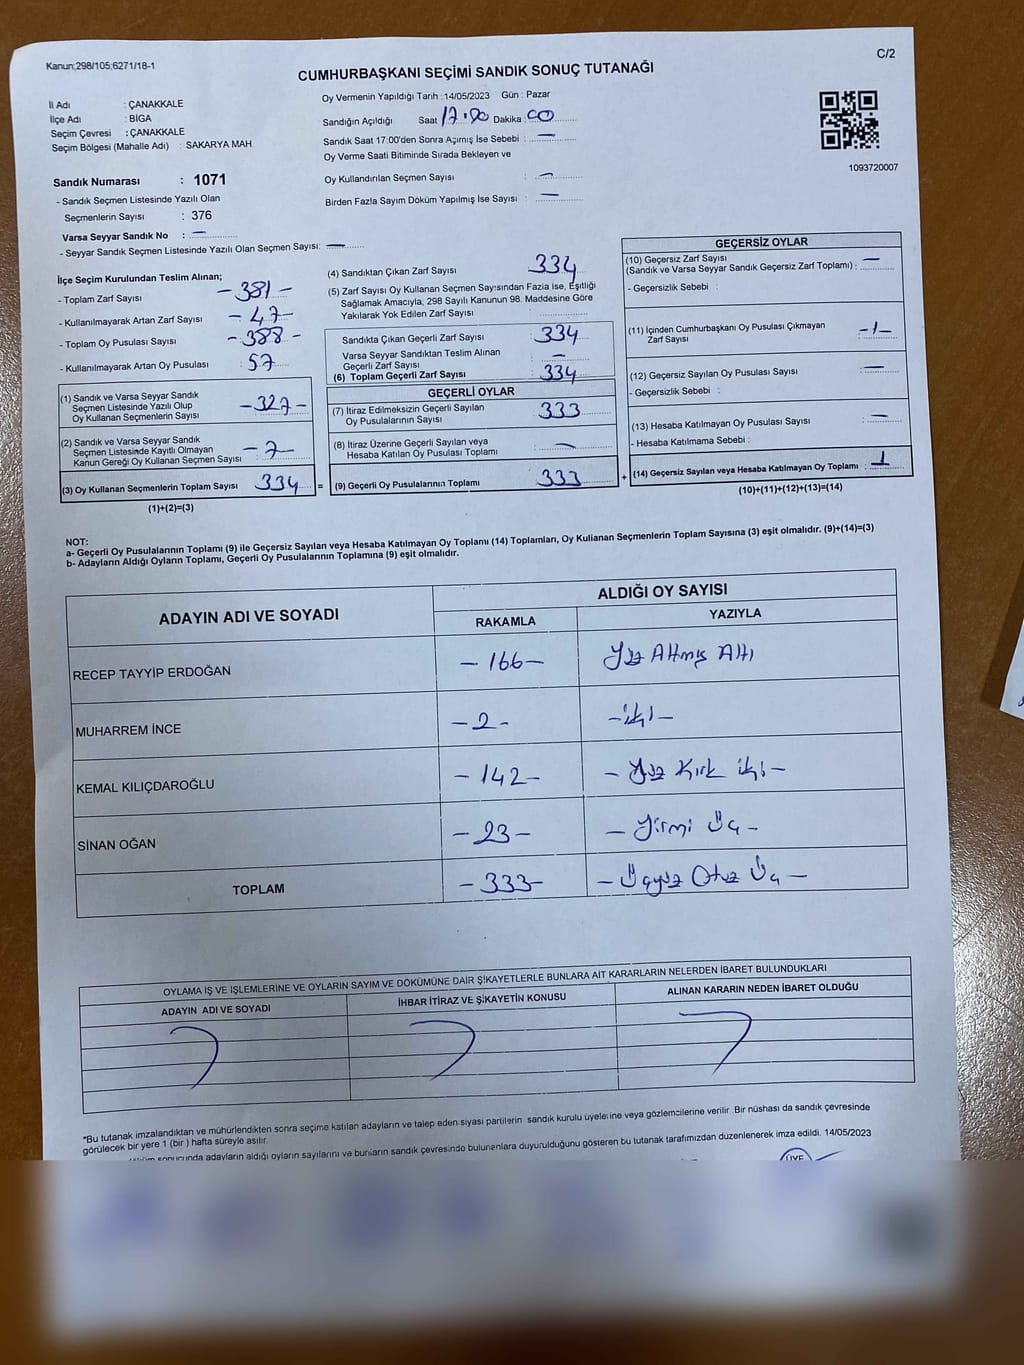 Kanun;298/105;6271/18-1
C/2
CUMHURBAŞKANI SEÇİMİ SANDIK SONUÇ TUTANAĞI
İl Adı : ÇANAKKALE
İlçe Adı : BİGA
Seçim Çevresi : ÇANAKKALE
Seçim Bölgesi (Mahalle Adı) : SAKARYA MAH
Oy Vermenin Yapıldığı Tarih :14/05/2023 Gün : Pazar
Sandığın Açıldığı Saat 17.00 Dakika : 00
Sandık Saat 17:00'den Sonra Açımış İse Sebebi : —
Oy Verme Saati Bitiminde Sırada Bekleyen ve
Oy Kullandırılan Seçmen Sayısı : —
Birden Fazla Sayım Döküm Yapılmış İse Sayısı : —
1093720007
Sandık Numarası : 1071
- Sandık Seçmen Listesinde Yazılı Olan
Seçmenlerin Sayısı : 376
Varsa Seyyar Sandık No : —
- Seyyar Sandık Seçmen Listesinde Yazılı Olan Seçmen Sayısı: —
İlçe Seçim Kurulundan Teslim Alınan;
- Toplam Zarf Sayısı - 381 -
- Kullanılmayarak Artan Zarf Sayısı - 47 -
- Toplam Oy Pusulası Sayısı - 388 -
- Kullanılmayarak Artan Oy Pusulası : 57
(1) Sandık ve Varsa Seyyar Sandık
Seçmen Listesinde Yazılı Olup
Oy Kullanan Seçmenlerin Sayısı - 327 -
(2) Sandık ve Varsa Seyyar Sandık
Seçmen Listesinde Kayıtlı Olmayan
Kanun Gereği Oy Kullanan Seçmen Sayısı - 7 -
(3) Oy Kullanan Seçmenlerin Toplam Sayısı 334 =
(1)+(2)=(3)
(4) Sandıktan Çıkan Zarf Sayısı : 334
(5) Zarf Sayısı Oy Kullanan Seçmen Sayısından Fazla İse, Eşitliği
Sağlamak Amacıyla, 298 Sayılı Kanunun 98. Maddesine Göre
Yakılarak Yok Edilen Zarf Sayısı :
Sandıkta Çıkan Geçerli Zarf Sayısı : 334
Varsa Seyyar Sandıktan Teslim Alınan
Geçerli Zarf Sayısı : —
(6) Toplam Geçerli Zarf Sayısı : 334
GEÇERLİ OYLAR
(7) İtiraz Edilmeksizin Geçerli Sayılan
Oy Pusulalarının Sayısı : 333
(8) İtiraz Üzerine Geçerli Sayılan veya
Hesaba Katılan Oy Pusulası Toplamı : —
(9) Geçerli Oy Pusulalarının Toplamı : 333 +
GEÇERSİZ OYLAR
(10) Geçersiz Zarf Sayısı
(Sandık ve Varsa Seyyar Sandık Geçersiz Zarf Toplamı) : —
- Geçersizlik Sebebi :
(11) İçinden Cumhurbaşkanı Oy Pusulası Çıkmayan
Zarf Sayısı : -1-
(12) Geçersiz Sayılan Oy Pusulası Sayısı : —
- Geçersizlik Sebebi :
(13) Hesaba Katılmayan Oy Pusulası Sayısı : —
- Hesaba Katılmama Sebebi :
(14) Geçersiz Sayılan veya Hesaba Katılmayan Oy Toplamı : 1
(10)+(11)+(12)+(13)=(14)
NOT:
a- Geçerli Oy Pusulalarının Toplamı (9) ile Geçersiz Sayılan veya Hesaba Katılmayan Oy Toplamı (14) Toplamları, Oy Kullanan Seçmenlerin Toplam Sayısına (3) eşit olmalıdır. (9)+(14)=(3)
b- Adayların Aldığı Oyların Toplamı, Geçerli Oy Pusulalarının Toplamına (9) eşit olmalıdır.
ADAYIN ADI VE SOYADI
ALDIĞI OY SAYISI
RAKAMLA YAZIYLA
RECEP TAYYİP ERDOĞAN - 166 - Yüz Altmış Altı
MUHARREM İNCE - 2 - - iki -
KEMAL KILIÇDAROĞLU - 142 - - Yüz Kırk iki -
SİNAN OĞAN - 23 - - Yirmi Üç -
TOPLAM - 333 - - Üçyüz Otuz Üç -
OYLAMA İŞ VE İŞLEMLERİNE VE OYLARIN SAYIM VE DÖKÜMÜNE DAİR ŞİKAYETLERLE BUNLARA AİT KARARLARIN NELERDEN İBARET BULUNDUKLARI
ADAYIN ADI VE SOYADI İHBAR İTİRAZ VE ŞİKAYETİN KONUSU ALINAN KARARIN NEDEN İBARET OLDUĞU
*Bu tutanak imzalandıktan ve mühürlendikten sonra seçime katılan adayların ve talep eden siyasi partilerin sandık kurulu üyelerine veya gözlemcilerine verilir .Bir nüshası da sandık çevresinde
görülecek bir yere 1 (bir ) hafta süreyle asılır.
sonucunda adayların aldığı oyların sayılarını ve bunların sandık çevresinde bulunanlara duyurulduğunu gösteren bu tutanak tarafımızdan düzenlenerek imza edildi. 14/05/2023
ÜYE